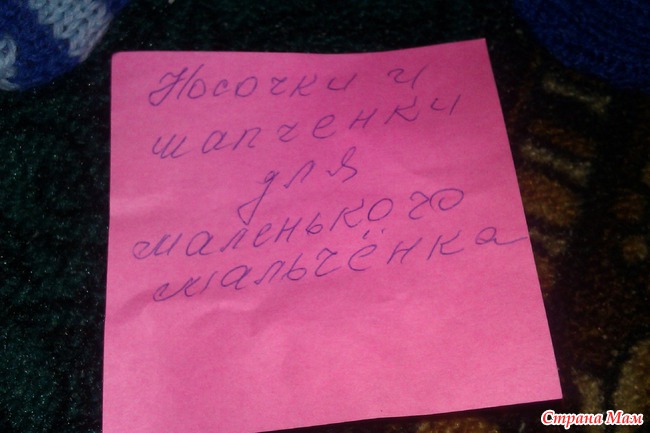 Носочки и
шапченки
для
маленького
мальчёнка
Страна Мам